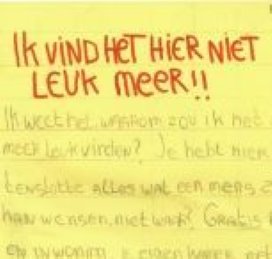 IK VIND HET HIER NIET
LEUK MEER!!
Ik weet het, waarom zou ik het
meer leuk vinden? Je hebt hier
tenslotte alles wat een mens z
kan wensen, niet waar? Gratis
en inwoning, je eigen kamer, het